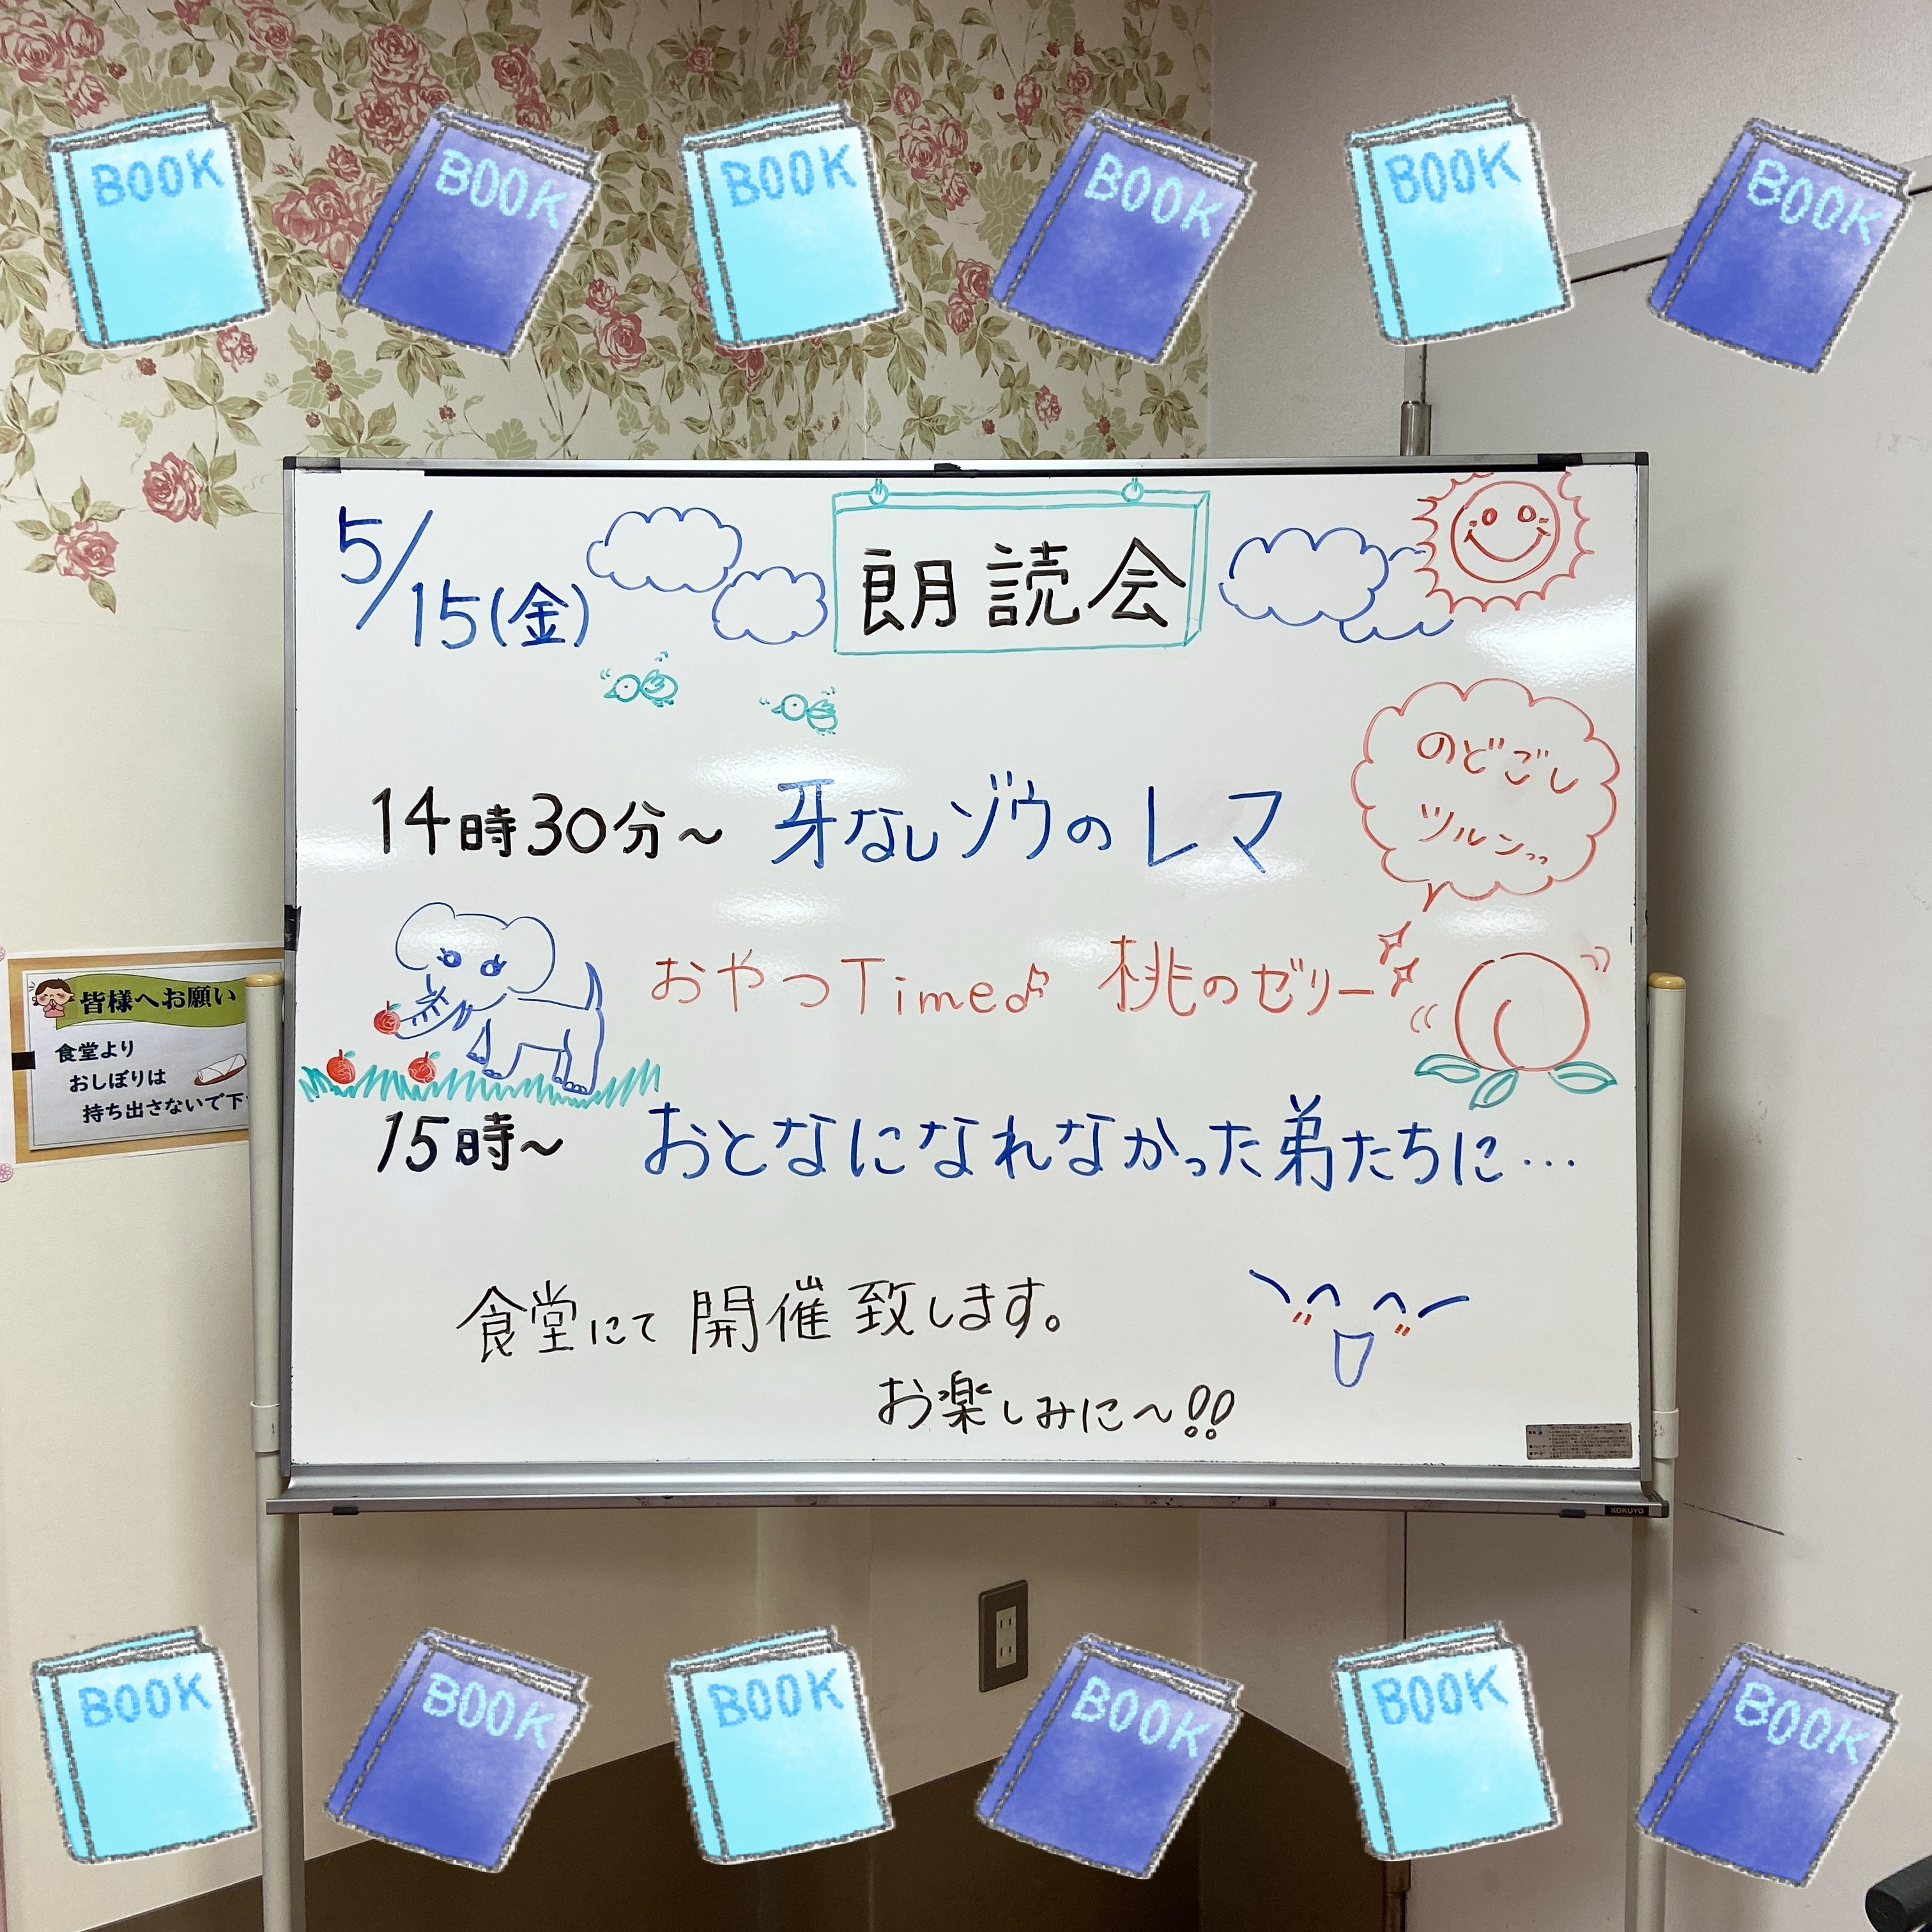 BOOK BOOK BOOK BOOK BOOK BOOK
5/15(金)
朗読会
のどごし
ツルンっっ
14時30分~ 牙なしゾウのレマ
おやつTime♪ 桃のゼリー
15時~ おとなになれなかった弟たちに…
食堂にて開催致します。
お楽しみに~!!
皆様へお願い
食堂より
おしぼりは
持ち出さないで下
KOKUYO
BOOK BOOK BOOK BOOK BOOK BOOK